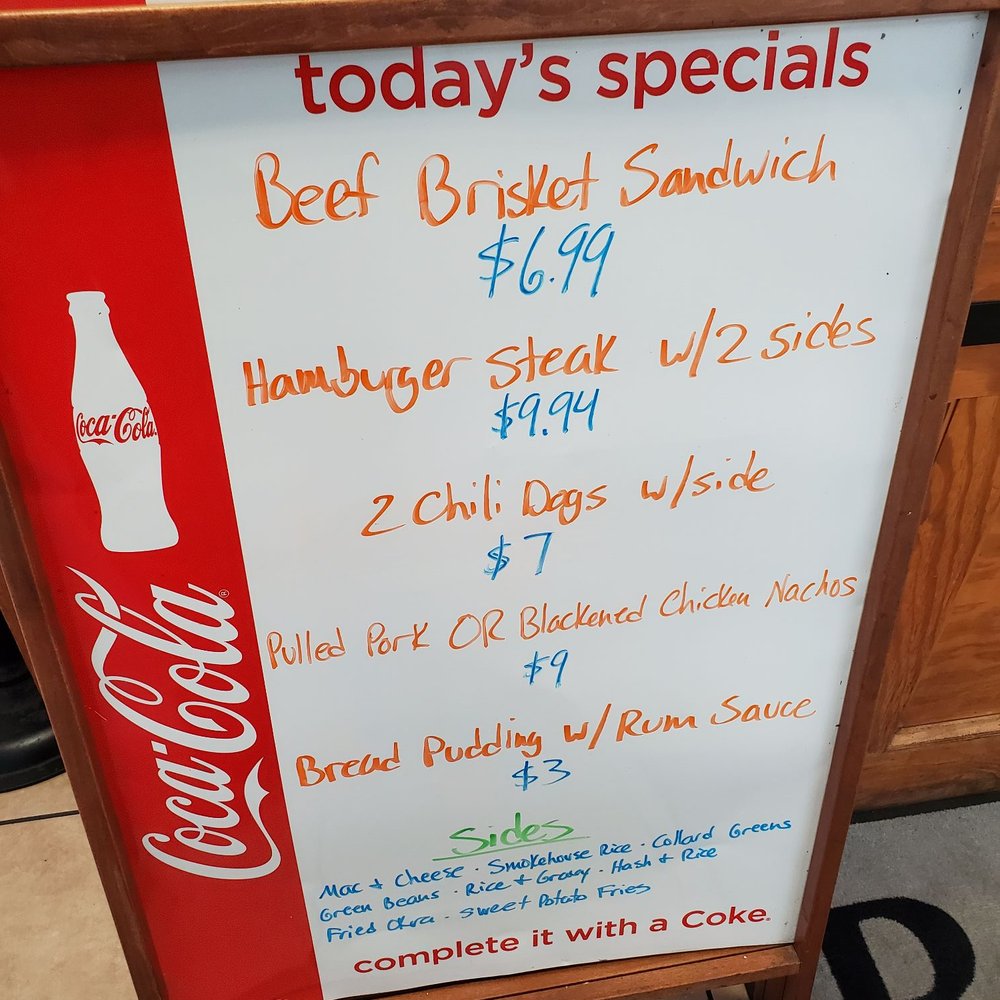 today's specials
Beef Brisket Sandwich
$6.99
Hamburger Steak w/2 sides
$9.94
2 Chili Dogs w/side
$7
Pulled Pork OR Blackened Chicken Nachos
$9
Bread Pudding w/Rum Sauce
$3
Sides
Mac + Cheese · Smokehouse Rice · Collard Greens
Green Beans · Rice + Gravy · Hash + Rice
Fried Okra · Sweet Potato Fries
complete it with a Coke®
Coca-Cola
Coca-Cola®
D